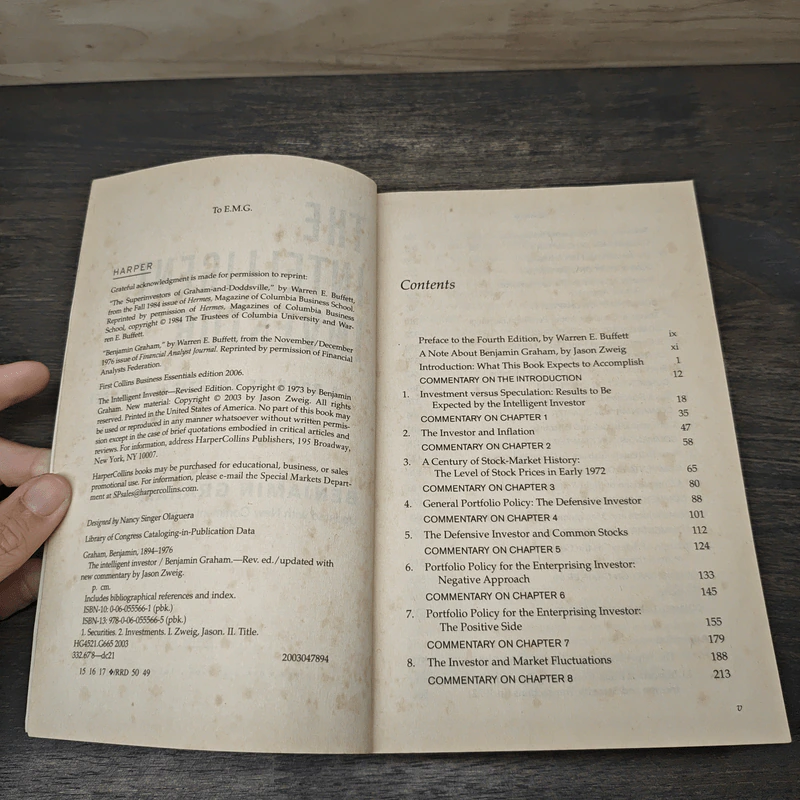 To E.M.G.
HARPER
Grateful acknowledgment is made for permission to reprint:
"The Superinvestors of Graham-and-Doddsville," by Warren E. Buffett,
from the Fall 1984 issue of Hermes, Magazine of Columbia Business School.
Reprinted by permission of Hermes, Magazines of Columbia Business
School, copyright © 1984 The Trustees of Columbia University and War-
ren E. Buffett.
"Benjamin Graham," by Warren E. Buffett, from the November/December
1976 issue of Financial Analyst Journal. Reprinted by permission of Financial
Analysts Federation.
First Collins Business Essentials edition 2006.
The Intelligent Investor—Revised Edition. Copyright © 1973 by Benjamin
Graham. New material: Copyright © 2003 by Jason Zweig. All rights
reserved. Printed in the United States of America. No part of this book may
be used or reproduced in any manner whatsoever without written permis-
sion except in the case of brief quotations embodied in critical articles and
reviews. For information, address HarperCollins Publishers, 195 Broadway,
New York, NY 10007.
HarperCollins books may be purchased for educational, business, or sales
promotional use. For information, please e-mail the Special Markets Depart-
ment at SPsales@harpercollins.com.
Designed by Nancy Singer Olaguera
Library of Congress Cataloging-in-Publication Data
Graham, Benjamin, 1894–1976
The intelligent investor / Benjamin Graham.—Rev. ed./updated with
new commentary by Jason Zweig.
p. cm.
Includes bibliographical references and index.
ISBN-10: 0-06-055566-1 (pbk.)
ISBN-13: 978-0-06-055566-5 (pbk.)
1. Securities. 2. Investments. I. Zweig, Jason. II. Title.
HG4521.G665 2003
332.67'8—dc21
2003047894
15 16 17 ❖/RRD 50 49
Contents
Preface to the Fourth Edition, by Warren E. Buffett ix
A Note About Benjamin Graham, by Jason Zweig xi
Introduction: What This Book Expects to Accomplish 1
COMMENTARY ON THE INTRODUCTION 12
1. Investment versus Speculation: Results to Be
Expected by the Intelligent Investor 18
COMMENTARY ON CHAPTER 1 35
2. The Investor and Inflation 47
COMMENTARY ON CHAPTER 2 58
3. A Century of Stock-Market History:
The Level of Stock Prices in Early 1972 65
COMMENTARY ON CHAPTER 3 80
4. General Portfolio Policy: The Defensive Investor 88
COMMENTARY ON CHAPTER 4 101
5. The Defensive Investor and Common Stocks 112
COMMENTARY ON CHAPTER 5 124
6. Portfolio Policy for the Enterprising Investor:
Negative Approach 133
COMMENTARY ON CHAPTER 6 145
7. Portfolio Policy for the Enterprising Investor:
The Positive Side 155
COMMENTARY ON CHAPTER 7 179
8. The Investor and Market Fluctuations 188
COMMENTARY ON CHAPTER 8 213
v